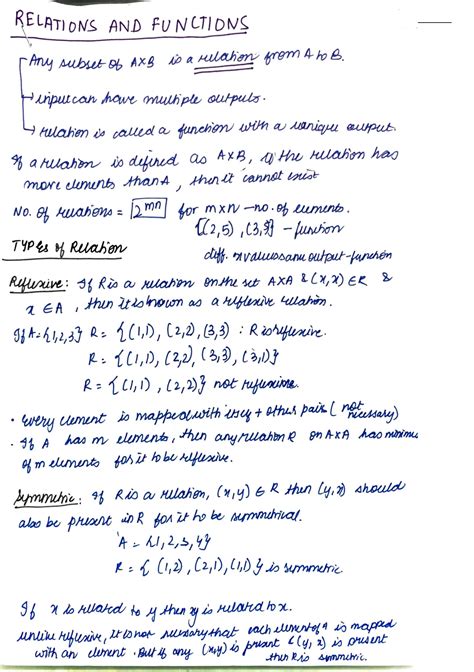 RELATIONS AND FUNCTIONS
Any subset of A×B is a relation from A to B.
→ input can have multiple outputs.
→ relation is called a function with a unique output.
If a relation is defined as A×B, if the relation has
more elements than A, then it cannot exist
No. of relations = 2^mn for m×n → no. of elements.
{(2,5), (3,9)} - function
diff. x values same output - function
TYPES of Relation
Reflexive: If R is a relation on the set A×A & (x,x) ∈ R &
x ∈ A, then it is known as a reflexive relation.
If A = {1,2,3} R = {(1,1), (2,2), (3,3) : R is reflexive.
R = {(1,1), (2,2), (3,3), (3,1)}
R = {(1,1), (2,2)} not reflexive.
• Every element is mapped with itself + other pairs (not necessary)
• If A has m elements, then any relation R on A×A has minimum
of m elements for it to be reflexive.
Symmetric: If R is a relation, (x,y) ∈ R then (y,x) should
also be present in R for it to be symmetrical.
A = {1,2,3,4}
R = {(1,2), (2,1), (1,1)} is symmetric
If x is related to y then y is related to x.
unlike reflexive, it is not necessary that each element of A is mapped
with an element. But if any (x,y) is present & (y,x) is present
then R is symmetric.